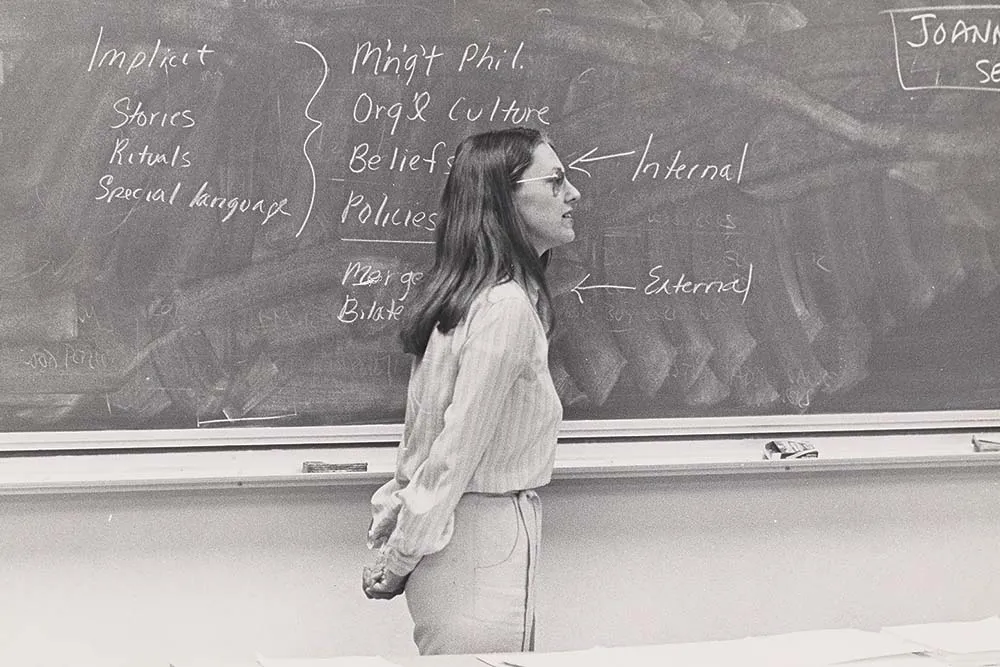 Implicit
Stories
Rituals
Special language
M'n'g't Phil.
Org'l Culture
Beliefs
Policies
Merge
Bilate
Internal
External
JOANN
SE